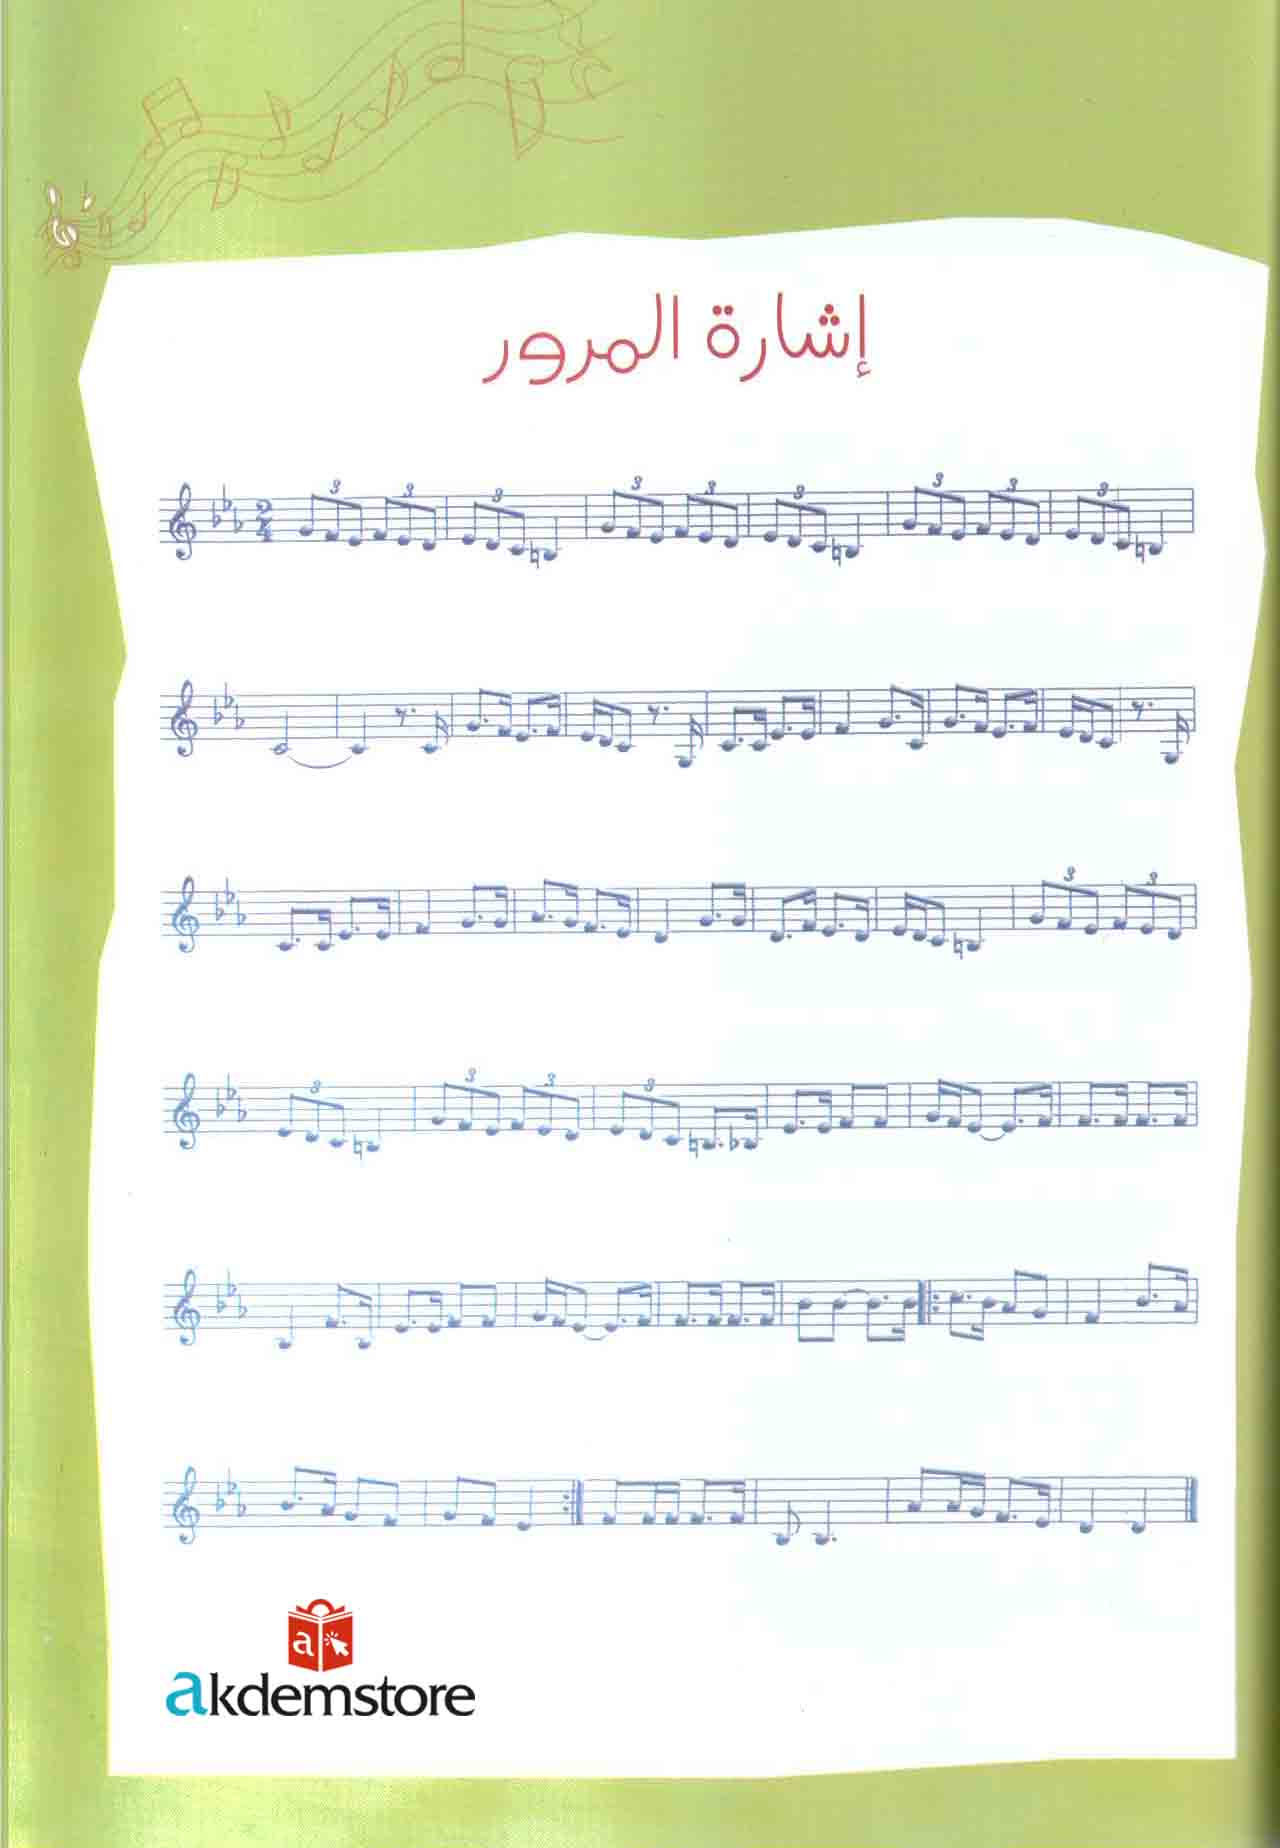 إشارة المرور
3 3 3 3 3 3 3 3 3
2
4
3 3
3 3 3 3
a
akdemstore